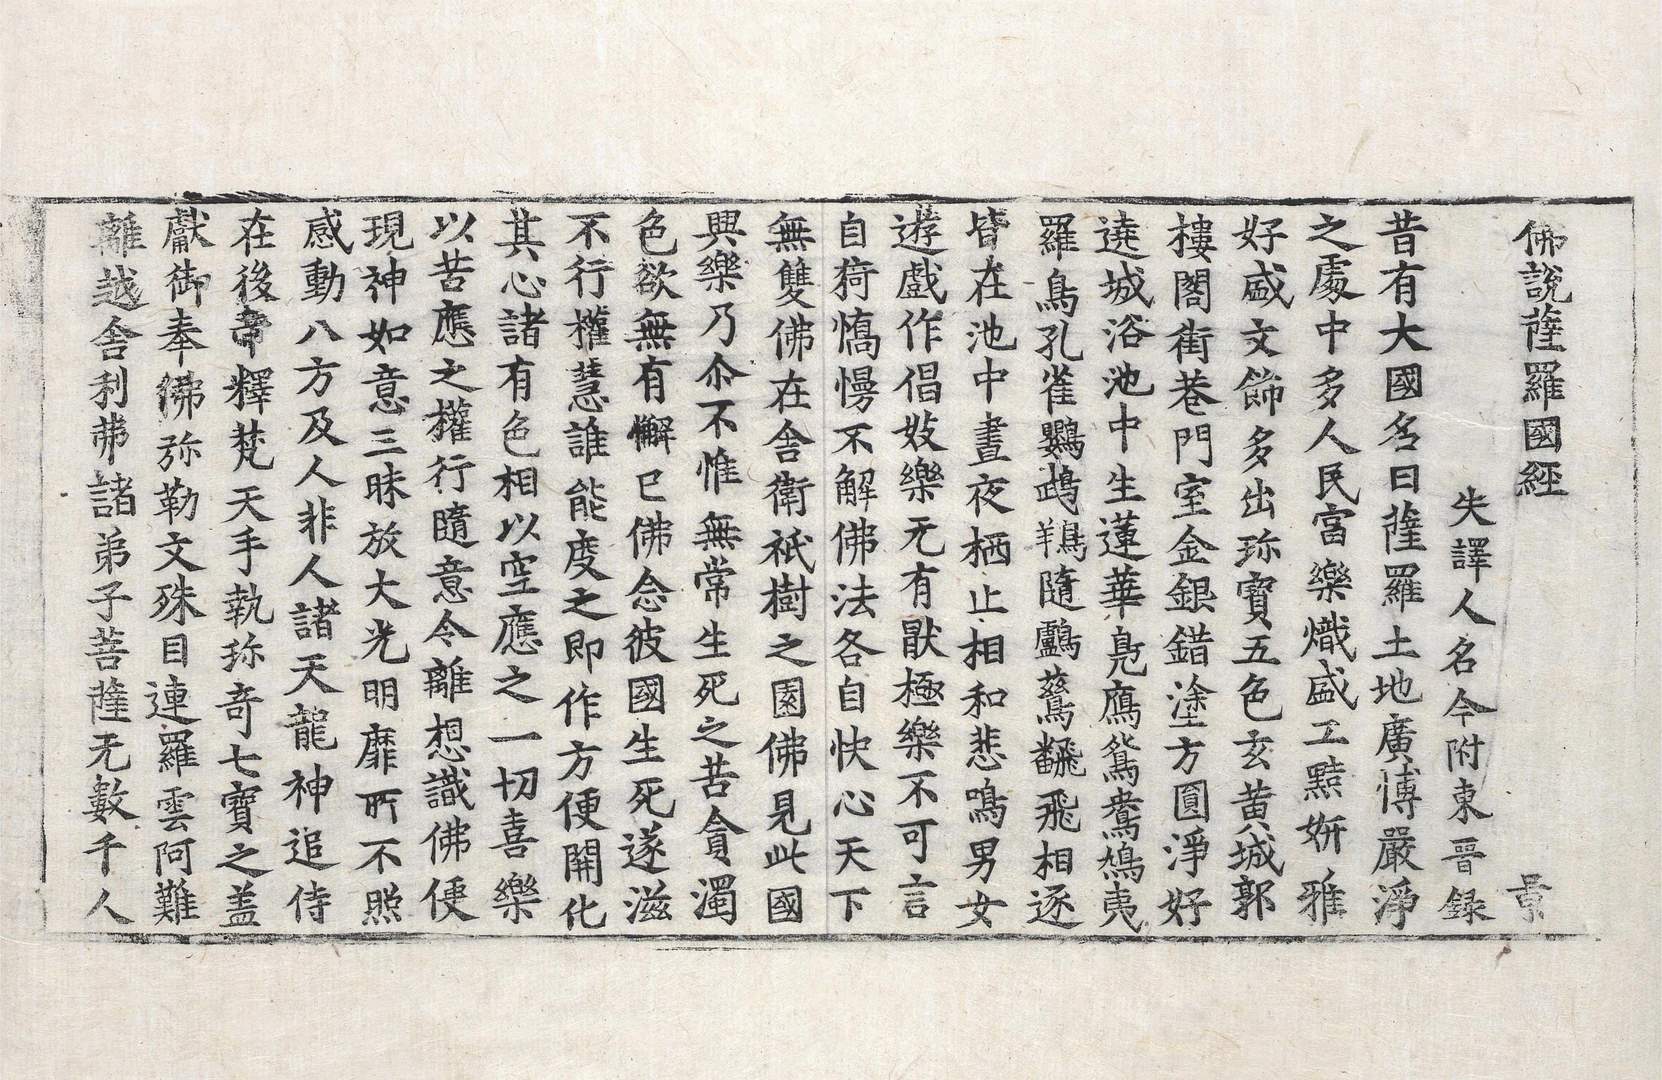 佛説薩羅國經 景
失譯人名今附東晉録
昔有大國名曰薩羅土地廣博嚴淨
之處中多人民富樂熾盛工黠姸雅
好盛文飾多出珎寳五色玄黃城郭
樓閣街巷門室金銀錯塗方圓淨好
遶城浴池中生蓮華鳧鴈鴛鴦鵁夷
羅鳥孔雀鸚鵡鶏隨鸕鷀飜飛相逐
皆在池中晝夜栖止相和悲鳴男女
遊戲作倡妓樂无有猒極樂不可言
自猗憍慢不解佛法各自快心天下
無雙佛在舎衛祇樹之園佛見此國
興樂乃尒不惟無常生死之苦貪濁
色欲無有懈已佛念彼國生死遂滋
不行權慧誰能度之即作方便開化
其心諸有色相以空應之一切喜樂
以苦應之權行隨意令離想識佛便
現神如意三昧放大光明靡所不照
感動八方及人非人諸天龍神追侍
在後帝釋梵天手執珎奇七寳之盖
獻御奉佛弥勒文殊目連羅雲阿難
離越舎利弗諸弟子菩薩无數千人